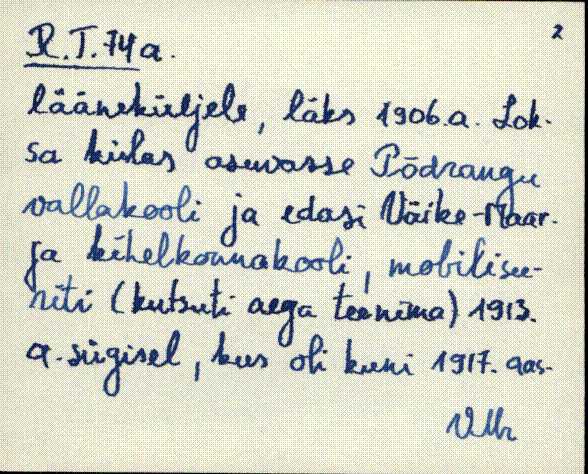 2
R.T. 74a.
lääneküljele, läks 1906.a. Lok-
sa külas asuvasse Põdrangu
vallakooli ja edasi Väike-Maar-
ja kihelkonnakooli, mobilisee-
riti (kutsuti aega teenima) 1913.
a. sügisel, kus oli kuni 1917. aas-